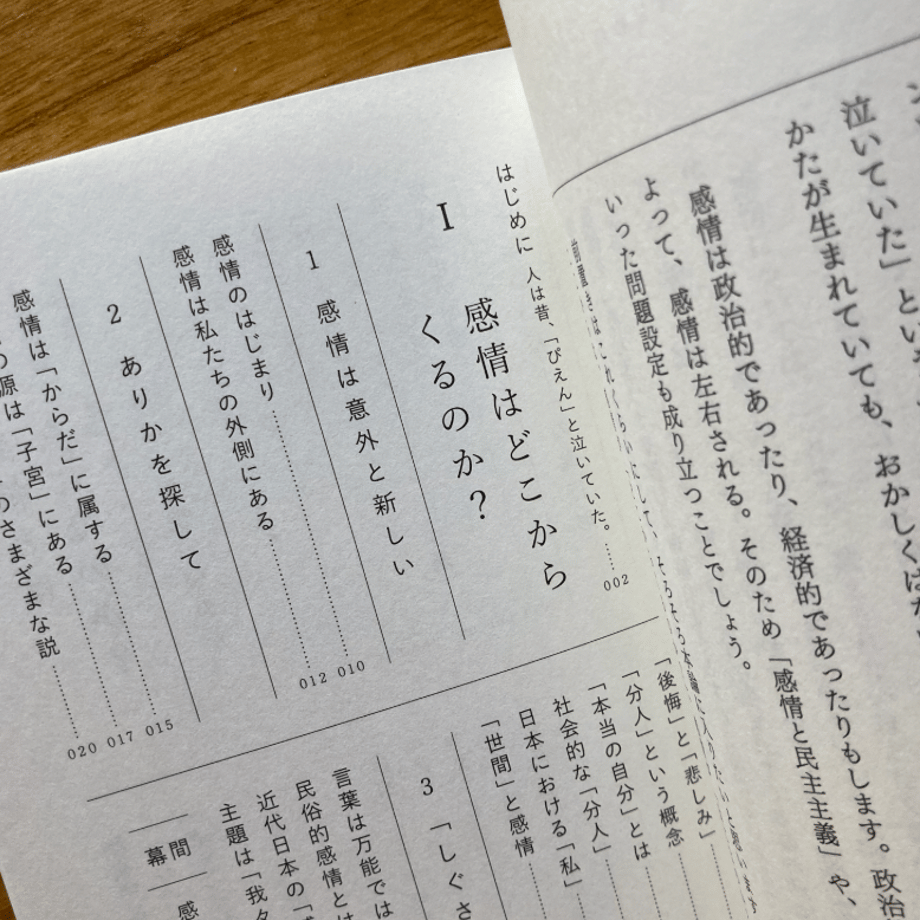 泣いていた」とい
かたが生まれていても、おかしくはな
感情は政治的であったり、経済的であったりもします。政治
よって、感情は左右される。そのため「感情と民主主義」や、
いった問題設定も成り立つことでしょう。
はじめに 人は昔、「ぴえん」と泣いていた。……002
I 感情はどこから
くるのか?
1 感情は意外と新しい
感情のはじまり……010
感情は私たちの外側にある……012
2 ありかを探して
感情は「からだ」に属する……015
源は「子宮」にある……017
のさまざまな説……020
「後悔」と「悲しみ」
「分人」という概念
「本当の自分」とは
社会的な「分人」
日本における「私」
「世間」と感情
3 「しぐさ
言葉は万能では
民俗的感情とは
近代日本の「
主題は「我々
幕間
感